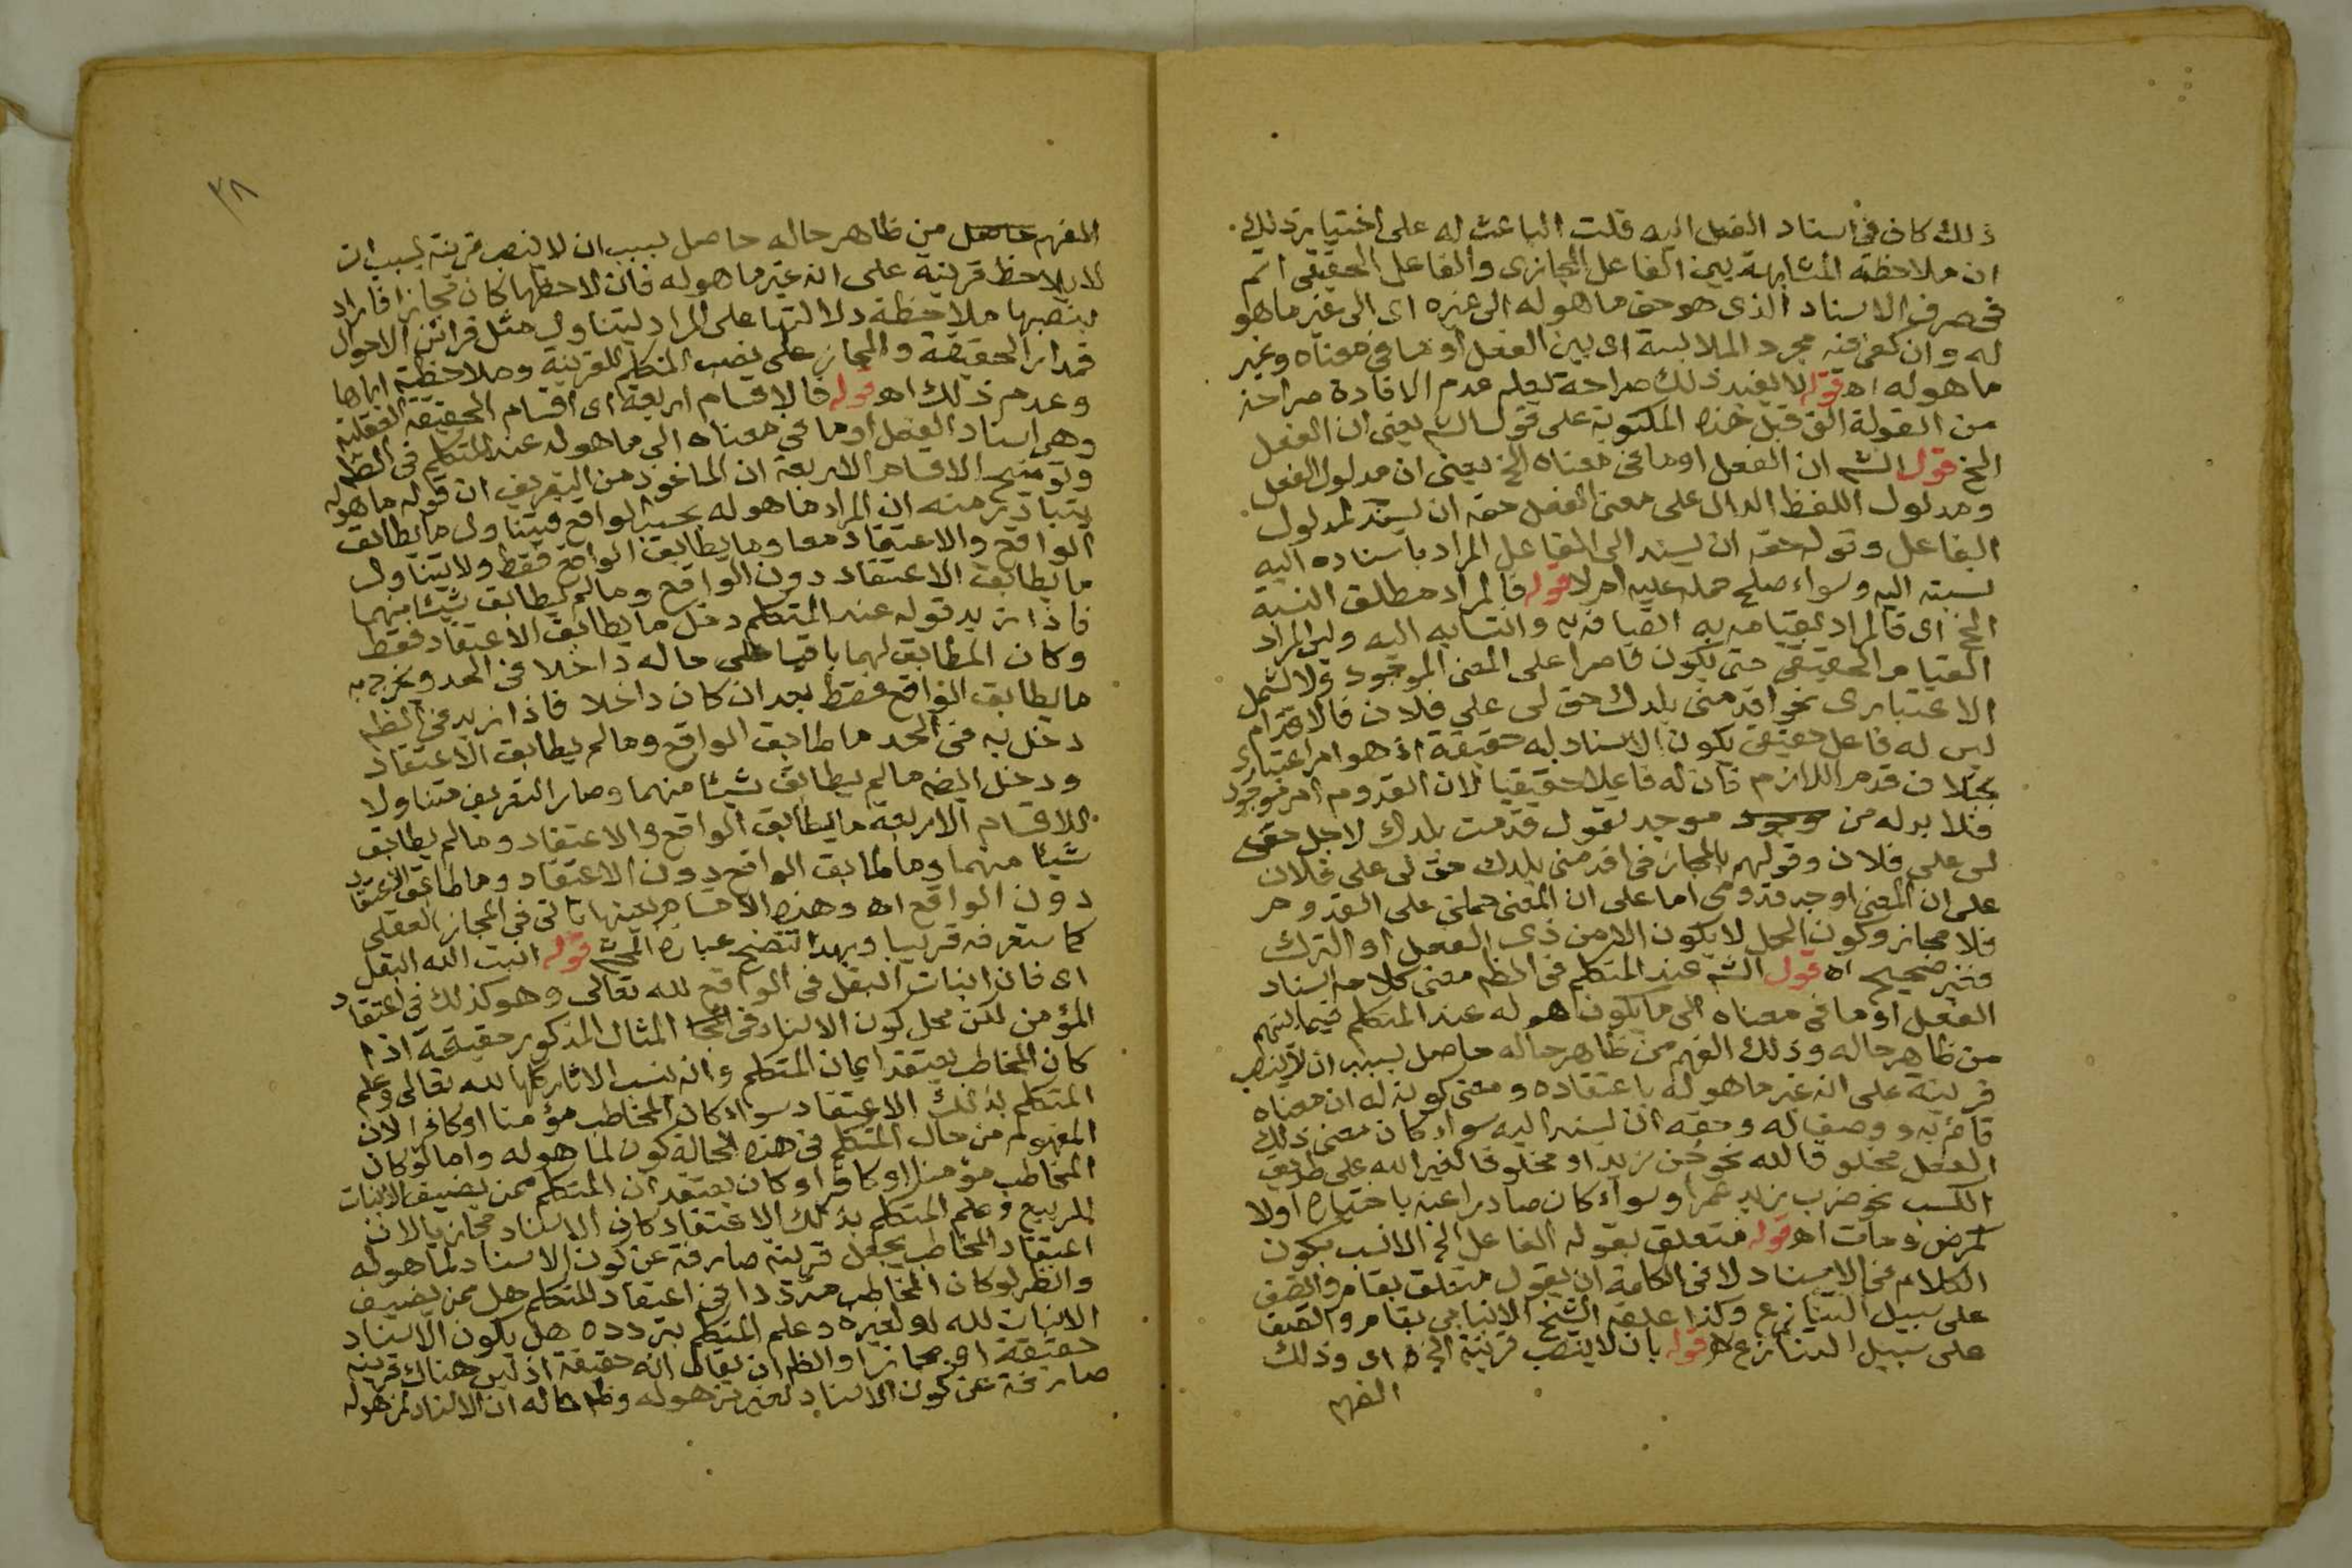 ذلك كان في اسناد الفعل اليه قلت الباعث له على اختيار ذلك
ان ملاحظة المشابهة بين الفاعل المجازى والفاعل الحقيقى اتم
فى صرف الاسناد الذى هو حق ما هو له الى غيره اى الى غير ما هو
له وان كفى فيه مجرد الملابسة اى بين الفعل او ما فى معناه وغير
ما هو له اه قوله لا يفيد ذلك صراحة لعله عدم الافادة صراحة
من القولة التى قبل هذه المكتوبة على قول الشم يعنى ان الفعل
الخ قول الشم ان الفعل او ما فى معناه الخ يعنى ان مدلول الفعل
ومدلول اللفظ الدال على معنى الفعل حقه ان يسند لمدلول
الفاعل وقوله حقه ان يسند الى الفاعل المراد باسناده اليه
نسبته اليه وسواء صلح حمله عليه ام لا قوله فالمراد مطلق النسبة
الخ اى فالمراد بقيامه به اتصافه به وانتسابه اليه وليس المراد
القيام الحقيقى حتى يكون قاصرا على المعنى الموجود ولا يشمل
الاعتبارى نحو اقدمنى بلدك حق لى على فلان فالاقدام
ليس له فاعل حقيقى يكون الاسناد له حقيقة اذ هو امر اعتبارى
بخلاف قدم اللازم فان له فاعلا حقيقيا لان القدوم امر موجود
فلا بد له من وجود موجد تقول قدمت بلدك لاجل حق
لى على فلان وقولهم بالمجاز فى اقدمنى بلدك حق لى على فلان
على ان المعنى اوجد قدومى اما على ان المعنى حملنى على القدوم
فلا مجاز وكون الحمل لا يكون الا من ذى الفعل او الترك
فغير صحيح اه قول الشم عند المتكلم فى الظم معنى كلامه اسناد
الفعل او ما فى معناه الى ما يكون هو له عند المتكلم فيما يفهم
من ظاهر حاله وذلك الفهم من ظاهر حاله حاصل بسبب ان لا ينصب
قرينة على انه غير ما هو له باعتقاده ومعنى كونه له ان معناه
قائم به ووصف له وحقه ان يسند اليه سواء كان معنى ذلك
الفعل مخلوقا لله نحو جن زيد او مخلوقا لغير الله على طريق
الكسب نحو ضرب زيد عمرا وسواء كان صادرا عنه باختياره اولا
كمرض ومات اه قوله متعلق بقوله الفاعل الخ الانسب بكون
الكلام فى الاسناد لا فى الكلمة ان يقول متعلق بقام واتصف
على سبيل التنازع وكذا علقه الشيخ الانبابى بقام واتصف
على سبيل التنازع اه قوله بان لا ينصب قرينة الخ اى وذلك
الفهم
٣٨
الفهم حاصل من ظاهر حاله حاصل بسبب ان لا ينصب قرينة بسبب ان
لا يلاحظ قرينة على انه غير ما هو له فان لاحظها كان مجازا فاراد
بنصبها ملاحظة دلالتها على المراد ليتناول مثل قرائن الاحوال
فمدار الحقيقة والمجاز على نصب المتكلم للقرينة وملاحظته اياها
وعدم ذلك اه قوله فالاقسام اربعة اى اقسام الحقيقة العقلية
وهى اسناد الفعل او ما فى معناه الى ما هو له عند المتكلم فى الظم
وتوضيح الاقسام الاربعة ان الماخوذ من التعريف ان قوله ما هو له
يتبادر منه ان المراد ما هو له بحسب الواقع فيتناول ما يطابق
الواقع والاعتقاد معا وما يطابق الواقع فقط ولا يتناول
ما يطابق الاعتقاد دون الواقع وما لم يطابق شيئا منهما
فاذا زيد قوله عند المتكلم دخل ما يطابق الاعتقاد فقط
وكان المطابق لهما باقيا على حاله داخلا فى الحد ويخرج به
ما يطابق الواقع فقط بعد ان كان داخلا فاذا زيد فى الظم
دخل به فى الحد ما طابق الواقع وما لم يطابق الاعتقاد
ودخل ايضه ما لم يطابق شيئا منهما وصار التعريف متناولا
للاقسام الاربعة ما يطابق الواقع والاعتقاد وما لم يطابق
شيئا منهما وما طابق الواقع دون الاعتقاد وما طابق الاعتقاد
دون الواقع اه وهذه الاقسام بعينها تاتى فى المجاز العقلى
كما ستعرفه قريبا وبهذا تتضح عبارة المحشى قوله انبت الله البقل
اى فان انبات البقل فى الواقع لله تعالى وهو كذلك فى اعتقاد
المؤمن لكن محل كون الاسناد فى المثال المذكور حقيقة اذا
كان المخاطب يعتقد ايمان المتكلم وانه ينسب الاثار كلها لله تعالى وعلم
المتكلم بذلك الاعتقاد سواء كان المخاطب مؤمنا او كافرا لان
المفهوم من حال المتكلم فى هذه الحالة كون لما هو له واما لو كان
المخاطب مؤمنا او كافرا وكان يعتقد ان المتكلم ممن يضيف الانبات
للربيع وعلم المتكلم بذلك الاعتقاد كان الاسناد مجازيا لان
اعتقاد المخاطب يجعل قرينة صارفة عن كون الاسناد لما هو له
وانظر لو كان المخاطب مترددا فى اعتقاد المتكلم هل ممن يضيف
الانبات لله او لغيره وعلم المتكلم بتردده هل يكون الاسناد
حقيقة او مجازا والظم ان يقال انه حقيقة اذ ليس هناك قرينة
صارفة عن كون الاسناد لغير من هو له وظم حاله ان الاسناد لمن هو له